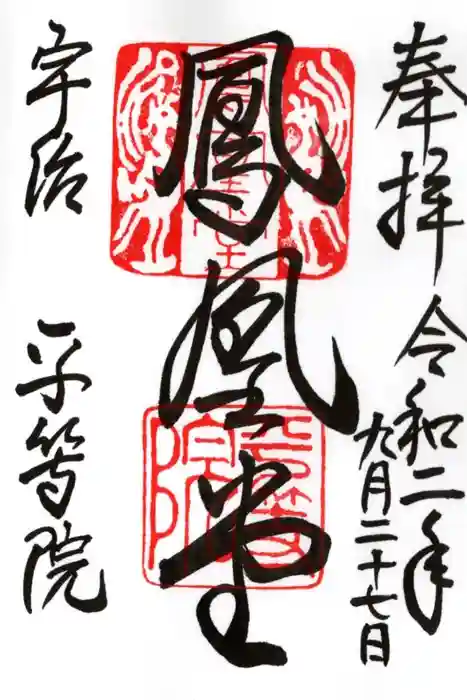 奉拝 令和二年
九月二十七日
鳳凰堂
宇治 平等院